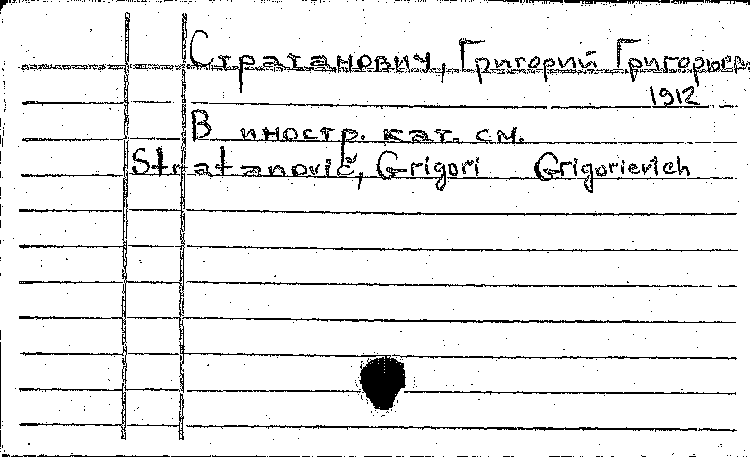 Стратанович, Григорий Григорьев
1912
В иностр. кат. см.
Stratanovič, Grigori Grigorievich